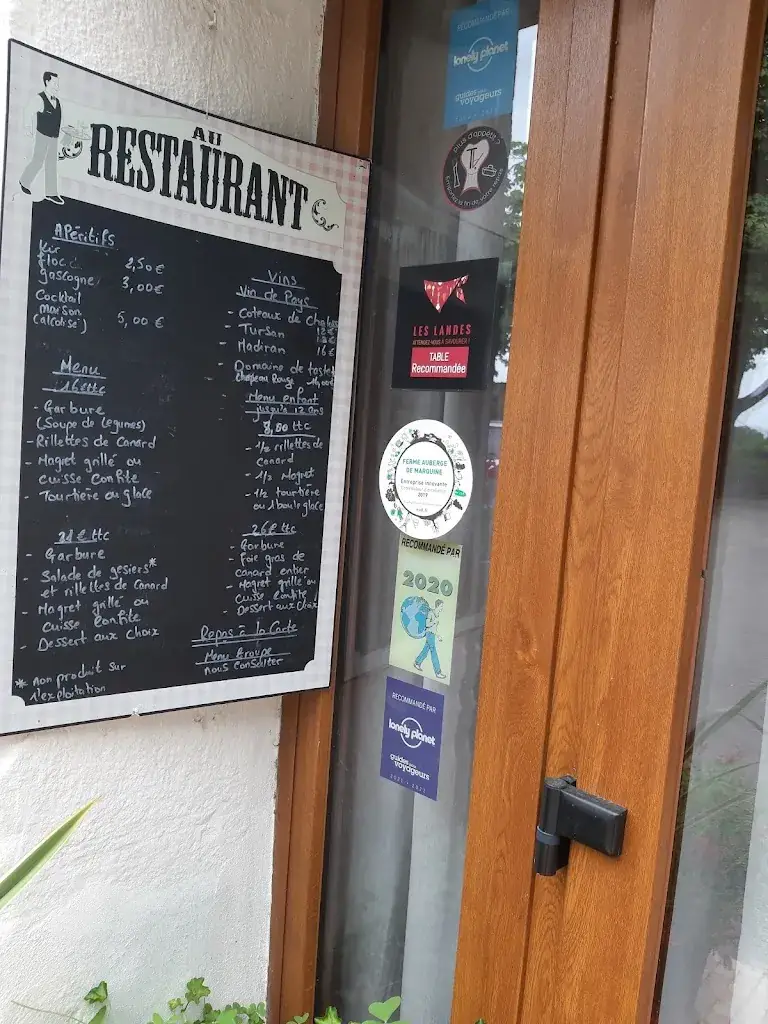 AU
RESTAURANT
Apéritifs
Kir 2,50 €
floc
gascogne 3,00 €
Cocktail
maison
(alcolisé) 5,00 €
Menu
16 € ttc
- Garbure
(Soupe de légumes)
- Rillettes de Canard
- Magret grillé ou
cuisse Confite
- Tourtière ou glace
21 € ttc
- Garbure
- Salade de gesiers*
et rillettes de Canard
- Magret grillé ou
cuisse Confite
- Dessert aux Choix
* non produit sur
l'exploitation
Vins
Vin de Pays
- Coteaux de
- Tursan
- Madiran 16 €
- Domaine de
Chapeau Rouge
Menu enfant
jusqu'à 12 ans
8,00 ttc
- 1/2 rillettes de
canard
- 1/2 Magret
- 1/2 tourtière
ou 1 boule glace
26 € ttc
- Garbure
- Foie gras de
canard entier
- Magret grillé ou
cuisse Confite
- Dessert aux Choix
Repas à la Carte
Menu Groupe
nous Consulter
RECOMMANDÉ PAR
lonely planet
guides
voyageurs
plus d'appétit ?
LES LANDES
ATTENDEZ-VOUS À SAVOURER !
TABLE
Recommandée
FERME AUBERGE
DE MARQUINE
Entreprise innovante
2019
RECOMMANDÉ PAR
2020
RECOMMANDÉ PAR
lonely planet
guides
voyageurs